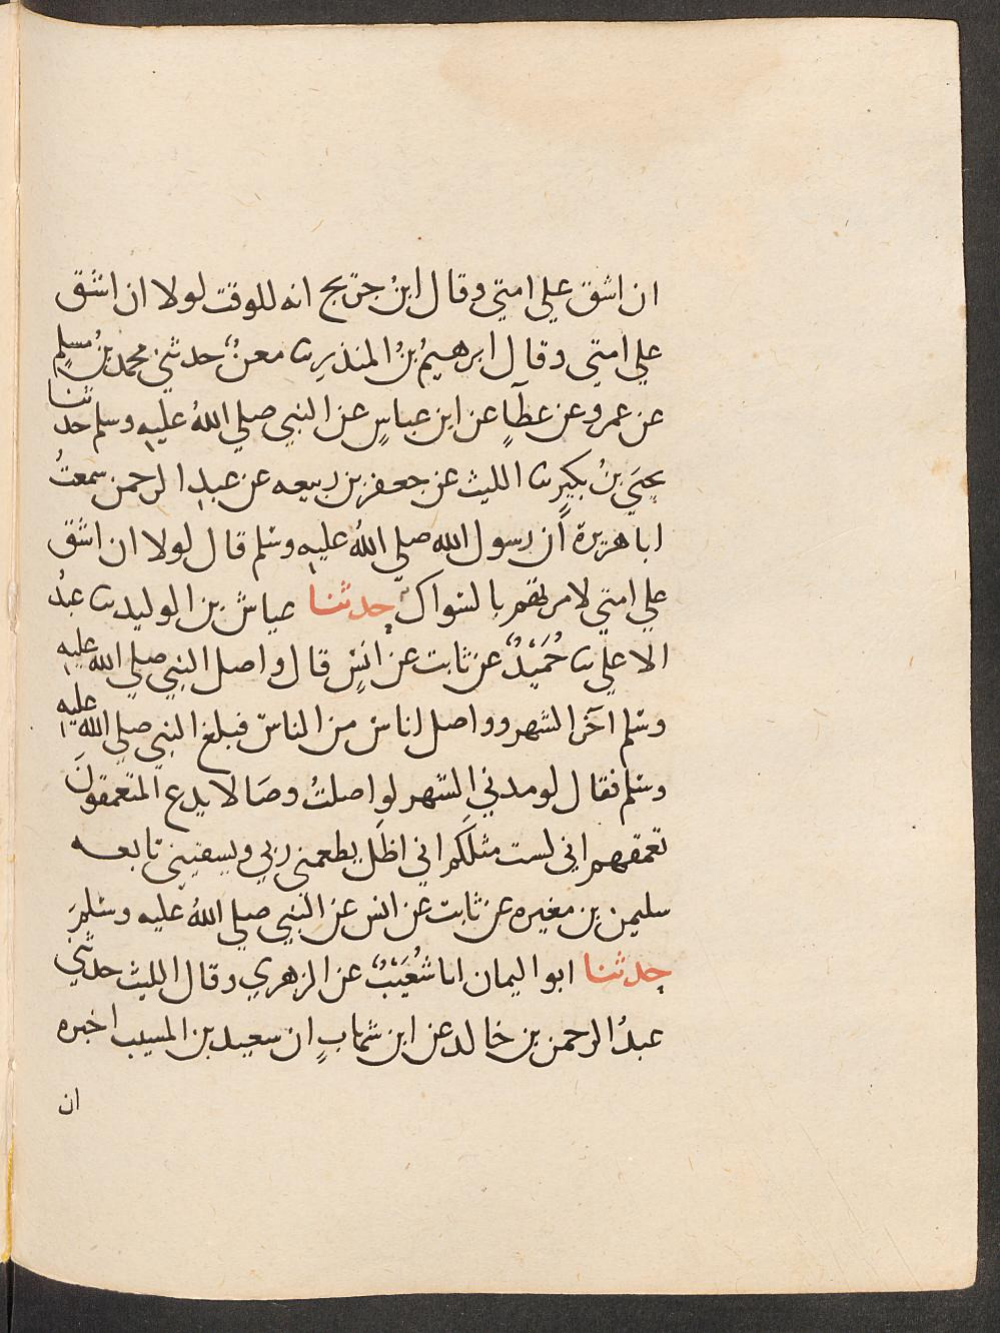 ان اشق علي امتي وقال ابنُ جريج انه للوقت لولا ان اشق
علي امتي وقال ابرهيمُ بنُ المنذر ثنا معنٌ حدثني محمد بنُ مسلمٍ
عن عمرو عن عطآءٍ عن ابن عباسٍ عن النبي صلي اللهُ عليه وسلم حدثنا
يحيَي بنُ بكيرٍ ثنا الليث عن جعفر بن ربيعه عن عبد الرحمن سمعتُ
ابا هريرة أن رسول الله صلي اللهُ عليه وسلم قال لولا ان اشق
علي امتي لامرتهم بالسواك حدثنا عياش بن الوليد ثنا عبدُ
الاعلي ثنا حُمَيْدٌ عن ثابت عن انسٍ قال واصل النبي صلي الله عليه
وسلم آخر الشهر وواصل اناس من الناس فبلغ النبي صلي الله عليه
وسلم فقال لو مد ني الشهر لواصلتُ وصَالا يدع المتعمقونَ
تعمقهم اني لست مثلكم اني اظل يطعمني ربي ويسقيني تابعه
سليمن بن مغيره عن ثابت عن انس عن النبي صلي اللهُ عليه وسلم
حدثنا ابو اليمان انا شُعَيْبٌ عن الزهري وقال الليث حدثني
عبدُ الرحمن بن خالد عن ابن شهابٍ ان سعيد بن المسيب اخبره
ان